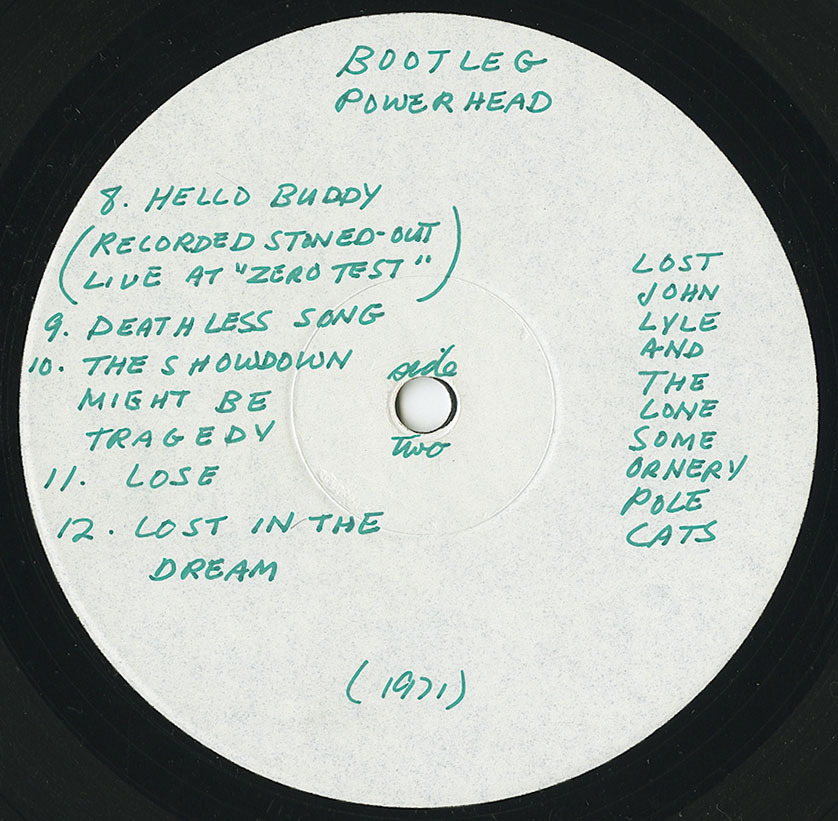 BOOTLEG
POWERHEAD
8. HELLO BUDDY
(RECORDED STONED-OUT
LIVE AT "ZERO TEST")
9. DEATHLESS SONG
10. THE SHOWDOWN
MIGHT BE
TRAGEDY
11. LOSE
12. LOST IN THE
DREAM
side
Two
LOST
JOHN
LYLE
AND
THE
LONE
SOME
ORNERY
POLE
CATS
(1971)